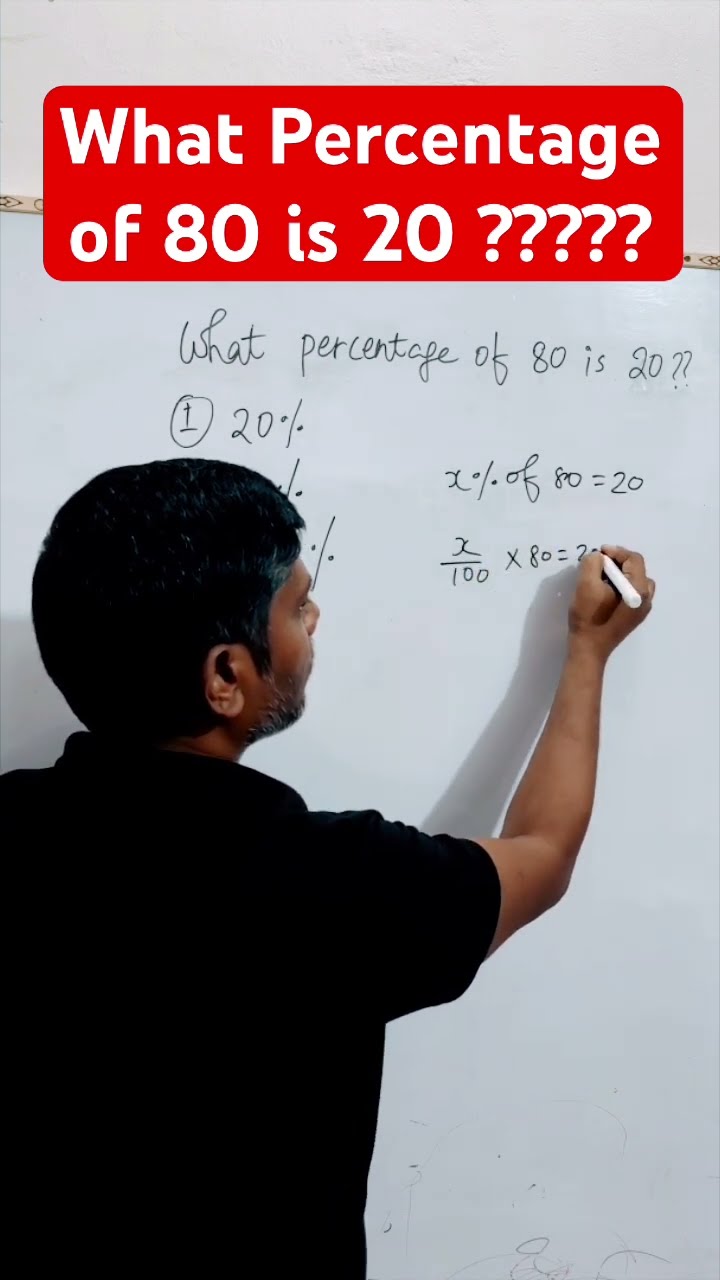 What Percentage
of 80 is 20 ?????
What percentage of 80 is 20??
① 20%
%
%
x% of 80 = 20
x/100 × 80 = 2